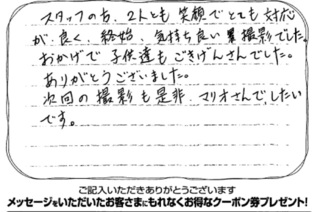 スタッフの方、2人とも笑顔でとても対応
が良く、終始、気持ち良い撮影でした。
おかげで子供達もごきげんさんでした。
ありがとうございました。
次回の撮影も是非、マリオさんでしたい
です。
ご記入いただきありがとうございます
メッセージをいただいたお客さまにもれなくお得なクーポン券プレゼント!